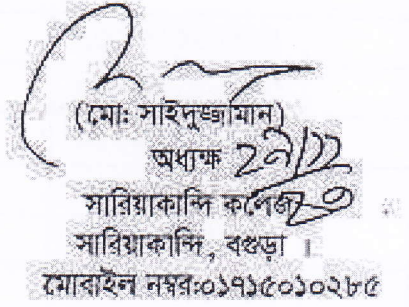 (মোঃ সাইদুজ্জামান)
অধ্যক্ষ
সারিয়াকান্দি কলেজ
সারিয়াকান্দি, বগুড়া ।
মোবাইল নম্বর:০১৭১৫০১০২৮৫